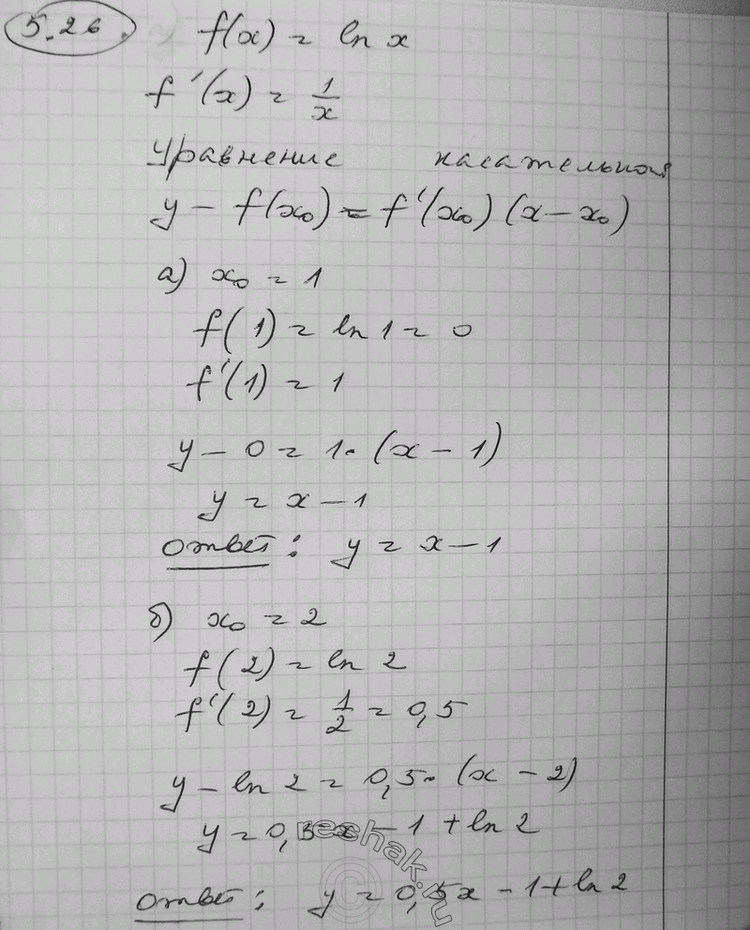 5.26. f(x) = ln x
f'(x) = 1/x
Уравнение касательной
y - f(x₀) = f'(x₀)(x - x₀)
а) x₀ = 1
f(1) = ln 1 = 0
f'(1) = 1
y - 0 = 1·(x - 1)
y = x - 1
Ответ: y = x - 1
б) x₀ = 2
f(2) = ln 2
f'(2) = 1/2 = 0,5
y - ln 2 = 0,5·(x - 2)
y = 0,5x - 1 + ln 2
Ответ: y = 0,5x - 1 + ln 2
reshak.ru